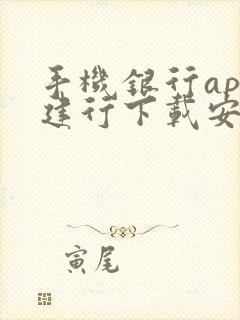 手機銀行ap
建行下載安
寅尾